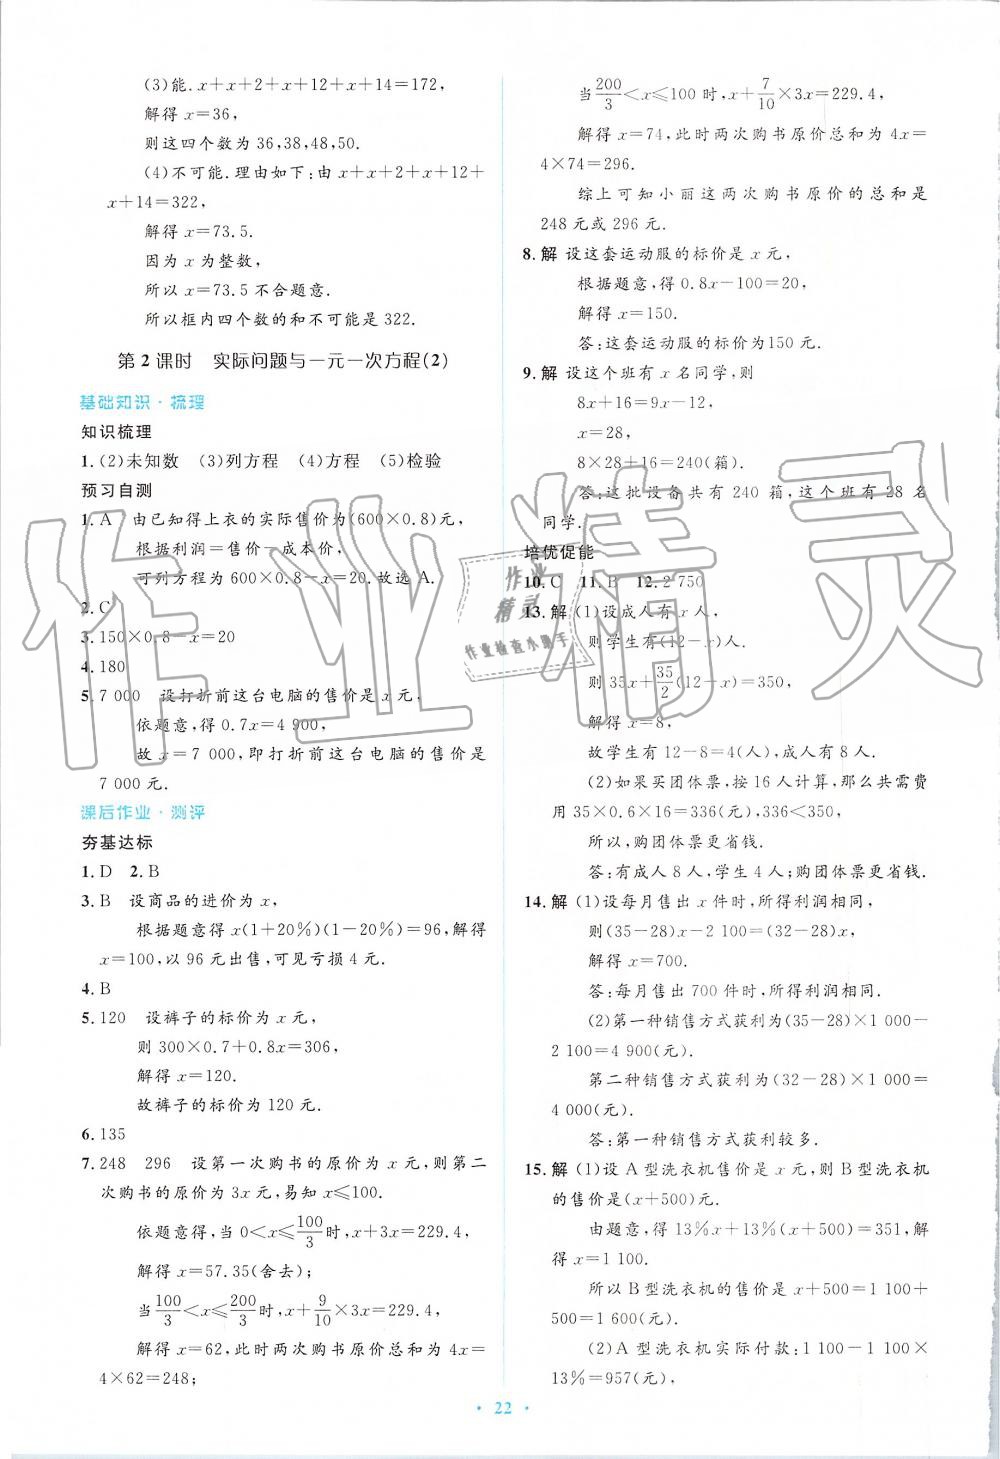 (3)能.x+x+2+x+12+x+14=172,
解得 x=36,
则这四个数为 36,38,48,50.
(4)不可能.理由如下:由 x+x+2+x+12+
x+14=322,
解得 x=73.5.
因为 x 为整数,
所以 x=73.5 不合题意.
所以框内四个数的和不可能是 322.
第 2 课时 实际问题与一元一次方程(2)
基础知识·梳理
知识梳理
1.(2)未知数 (3)列方程 (4)方程 (5)检验
预习自测
1.A 由已知得上衣的实际售价为(600×0.8)元,
根据利润=售价-成本价,
可列方程为 600×0.8-x=20.故选 A.
2.C
3.150×0.8-x=20
4.180
5.7 000 设打折前这台电脑的售价是 x 元,
依题意,得 0.7x=4 900,
故 x=7 000,即打折前这台电脑的售价是
7 000 元.
课后作业·测评
夯基达标
1.D 2.B
3.B 设商品的进价为 x,
根据题意得 x(1+20%)(1-20%)=96,解得
x=100,以 96 元出售,可见亏损 4 元.
4.B
5.120 设裤子的标价为 x 元,
则 300×0.7+0.8x=306,
解得 x=120.
故裤子的标价为 120 元.
6.135
7.248 296 设第一次购书的原价为 x 元,则第二
次购书的原价为 3x 元,易知 x≤100.
依题意得,当 0<x≤100/3 时,x+3x=229.4,
解得 x=57.35(舍去);
当 100/3<x≤200/3 时,x+9/10×3x=229.4,
解得 x=62,此时两次购书原价总和为 4x=
4×62=248;
当 200/3<x≤100 时,x+7/10×3x=229.4,
解得 x=74,此时两次购书原价总和为 4x=
4×74=296.
综上可知小丽这两次购书原价的总和是
248 元或 296 元.
8.解 设这套运动服的标价是 x 元,
根据题意,得 0.8x-100=20,
解得 x=150.
答:这套运动服的标价为150 元.
9.解 设这个班有 x 名同学,则
8x+16=9x-12,
x=28,
8×28+16=240(箱).
答:这批设备共有 240 箱,这个班有 28 名
同学.
培优促能
10.C 11.B 12.2 750
13.解 (1)设成人有 x 人,
则学生有(12-x)人.
则 35x+35/2(12-x)=350,
解得 x=8,
故学生有 12-8=4(人),成人有 8 人.
(2)如果买团体票,按 16 人计算,那么共需费
用 35×0.6×16=336(元),336<350,
所以,购团体票更省钱.
答:有成人 8 人,学生 4 人;购团体票更省钱.
14.解 (1)设每月售出 x 件时,所得利润相同,
则(35-28)x-2 100=(32-28)x,
解得 x=700.
答:每月售出 700 件时,所得利润相同.
(2)第一种销售方式获利为(35-28)×1 000-
2 100=4 900(元).
第二种销售方式获利为(32-28)×1 000=
4 000(元).
答:第一种销售方式获利较多.
15.解 (1)设 A 型洗衣机售价是 x 元,则 B 型洗衣机
的售价是(x+500)元.
由题意,得 13%x+13%(x+500)=351,解
得 x=1 100.
所以 B 型洗衣机的售价是 x+500=1 100+
500=1 600(元).
(2)A 型洗衣机实际付款:1 100-1 100×
13%=957(元),
· 22 ·
作业精灵
作业
精灵
作业检查小帮手